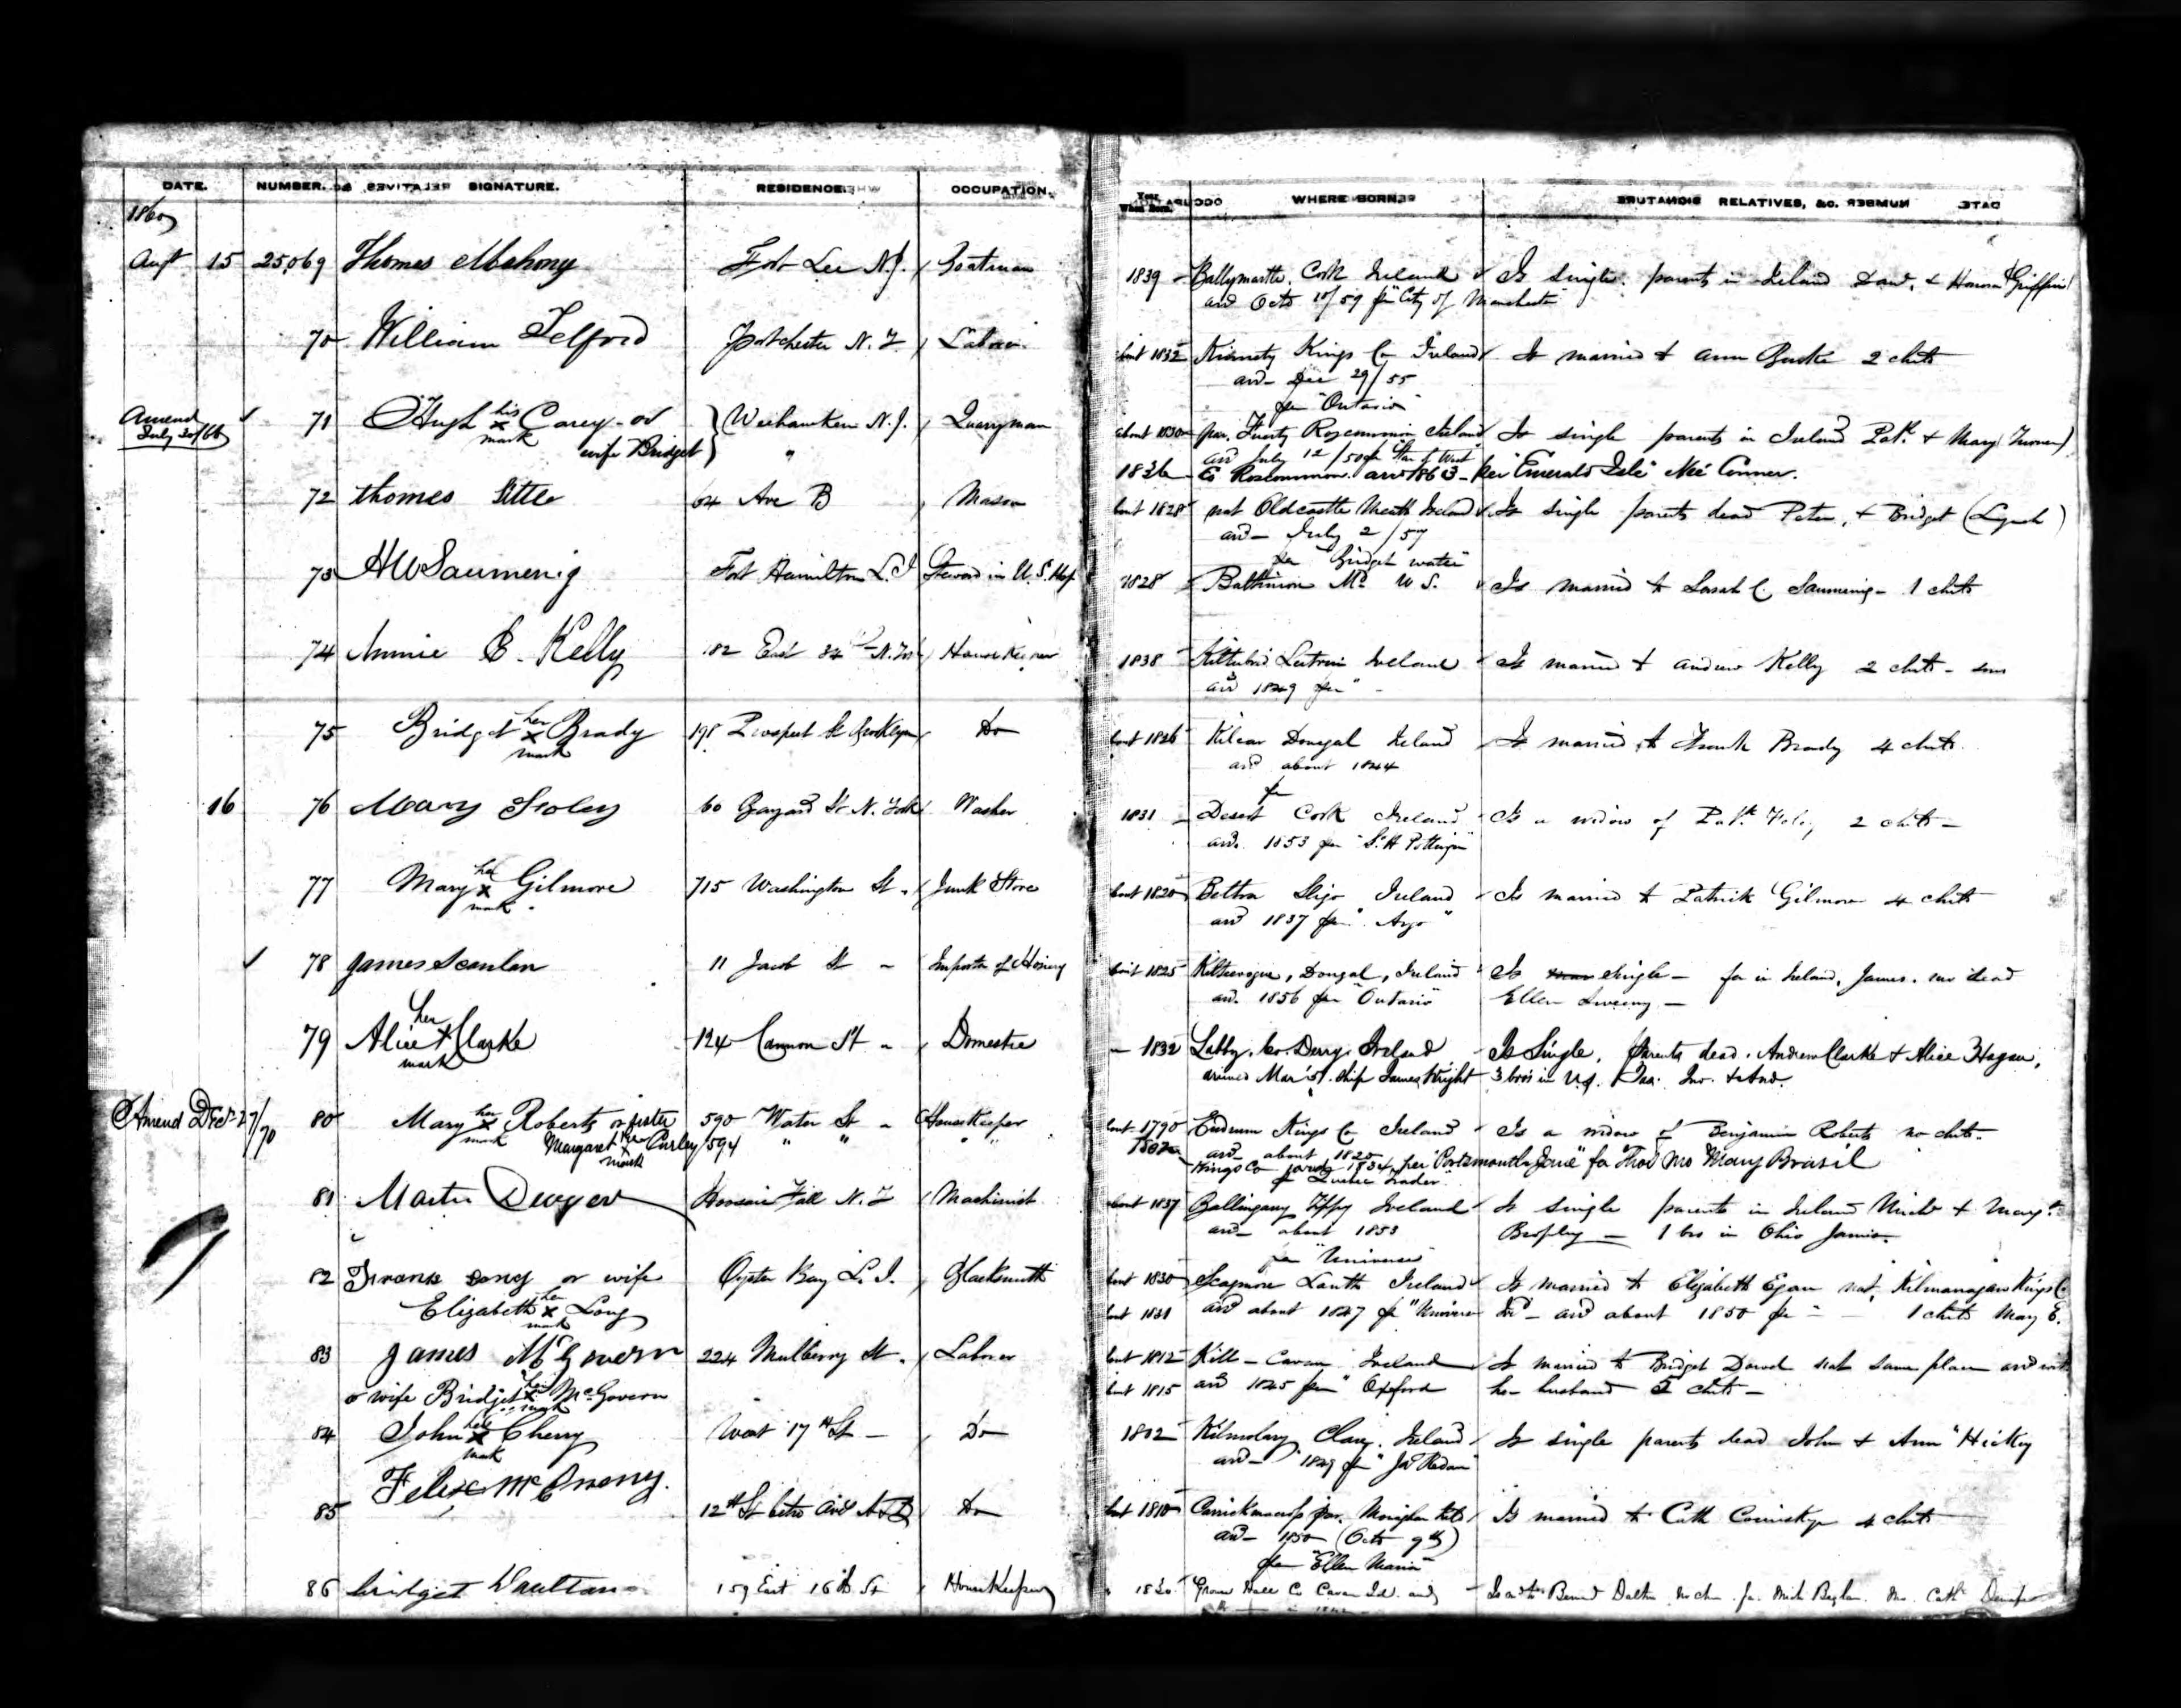 DATE. NUMBER. SIGNATURE. RESIDENCE. OCCUPATION. Year When Born. WHERE BORN. RELATIVES, &c.
1860
Augt 15 25,069 Thomas Mahony Fort Lee N.J. Boatman 1839 Ballymartle. Cork Ireland Is single. parents in Ireland Danl. & Honora (Griffin)
arrd Octo 10/59 per "City of Manchester"
70 William Telford Portchester N.Y. Laborer bout 1832 Kinnety Kings Co Ireland Is married to Ann Burke 2 chits
arrd Dec 29/55
per "Ontario"
Amend July 30/66 71 Hugh his x mark Carey or Weehawken N.J. Quarryman about 1830 par. Fuerty Roscommon Ireland Is single parents in Ireland Patk & Mary
wife Bridget " arrd July 12/50 per Star of West
1836 Co Roscommon. arrd 1863 per "Emerald Isle" Neé Conner.
72 thomas little 64 Ave B Mason bout 1828 nat Oldcastle Meath Ireland Is single parents dead Peter, & Bridget (Lynch)
arrd July 2/57
per "Bridget water"
73 HWSaumenig Fort Hamilton L.I. Steward in U.S. Hosp 1828 Baltimore Md U S. Is married to Sarah C. Saumenig - 1 chits
74 Annie E. Kelly 182 East 34th N. York House Keeper 1838 Kiltubrid Leitrim Ireland Is married to Andrew Kelly 2 chits - sons
arrd 1849 per " -
75 Bridget her x mark Brady 198 Prospect St Brooklyn Do bout 1826 Kilcar Donegal Ireland Is married to Frank Brady 4 chits
arrd about 1844
per
16 76 Mary Foley 60 Bayard St N. York Washer 1831 Desert Cork Ireland Is a widow of Patk Foley 2 chits -
arrd. 1853 per "Sr H Pottinger"
77 Mary her x mark Gilmore 715 Washington St. Junk Store bout 1820 Beltra Sligo Ireland Is married to Patrick Gilmore 4 chits
arrd 1837 per "Argo"
78 James Scanlan 11 Jacob St Importer of Hosiery bout 1825 Donegal, Ireland Is single - fa in Ireland, James. mo dead
arrd. 1856 per "Ontario" Ellen Sweeny -
79 Alice her x mark Clarke 124 Cannon St Domestic 1832 Labby, Co. Derry, Ireland Is Single. Parents dead. Andrew Clarke & Alice Hagan,
arrived Mar '51. ship James Wright 3 bros in U.S. Jas. Jno. & And.
Amend Decr 27/70 80 Mary her x mark Roberts or sister 590 Water St HouseKeeper bout 1790 Kings Co Ireland Is a widow of Benjamin Roberts no chits -
Margaret her x mark Curley 594 " " " " arrd about 1820
Kings Co arrd 1834, per "Portsmouth" fa Thos Mo Mary Brasil
per Quebec Trader
81 Martin Dwyer Hoosair Fall N.Y Machinist bout 1837 Ballingarry Tippy Ireland Is single parents in Ireland Michl & Margt
arrd about 1853 Brophy - 1 bro in Ohio James
per "Universe"
82 Frank Long or wife Oyster Bay L.I. Blacksmith bout 1830 Louth Ireland Is married to Elizabeth Egan nat. Kilmanagan Kings Co
Elizabeth her x mark Long bout 1831 arrd about 1847 per "Universe Ird - arrd about 1850 per " - 1 chits Mary E.
83 James McGovern 224 Mulberry St. Laborer bout 1812 Kill - Cavan Ireland Is married to Bridget Dowd nat same place arrd with
or wife Bridget her x mark McGovern bout 1815 arrd 1845 per "Oxford her husband 5 chits -
84 John his x mark Cherry West 17th St - Do 1802 Clare. Ireland Is single parents dead John & Ann "Hickey
arrd - 1849 per "Jas Redan"
85 Felix McEneny. 12th St betn Aves A & B Do bout 1810 Carrickmacross par. Monaghan Ireld Is married to Cath 4 chits
arrd - 1850 (Octo 9th)
per "Ellen Maria"
86 bridget Daultan 159 East 16th St HouseKeeper 1830 Co Cavan Ird. arrd Is md to Bernd Dalton no chn. fa. Mich Mo. Cath